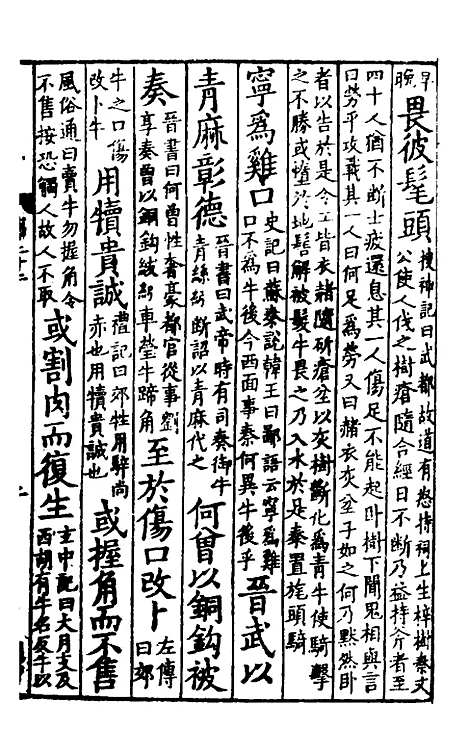 早
晚
畏彼髦頭
搜神記曰武都故道有怒特祠上生梓樹秦文
公使人伐之樹瘡隨合經日不斷乃益持斧者至
四十人猶不斷士疲還息其一人傷足不能起卧樹下聞鬼相與言
曰勞乎攻戰其一人曰何足為勞又曰赭衣灰坌子如之何乃黙然卧
者以告於是令工皆衣赭隨斫瘡坌以灰樹斷化為青牛使騎擊
之不勝或墮於地髻解被髮牛畏之乃入水於是秦置旄頭騎
寧為雞口
史記曰蘇秦說韓王曰鄙語云寧為雞
口不為牛後今西面事秦何異牛後乎
晉武以
青麻彰德
晉書曰武帝時有司奏御牛
青絲紖斷詔以青麻代之
何曾以銅鈎被
奏
晉書曰何曾性奢豪都官從事劉
享奏曾以銅鈎紱紖車瑩牛蹄角
至於傷口改卜
左傳
曰郊
牛之口傷
改卜牛
用犢貴誠
禮記曰郊牲用騂尚
赤也用犢貴誠也
或握角而不售
風俗通曰賣牛勿握角令
不售按恐觸人故人不取
或割肉而復生
玄中記曰大月支及
西胡有牛名反牛以